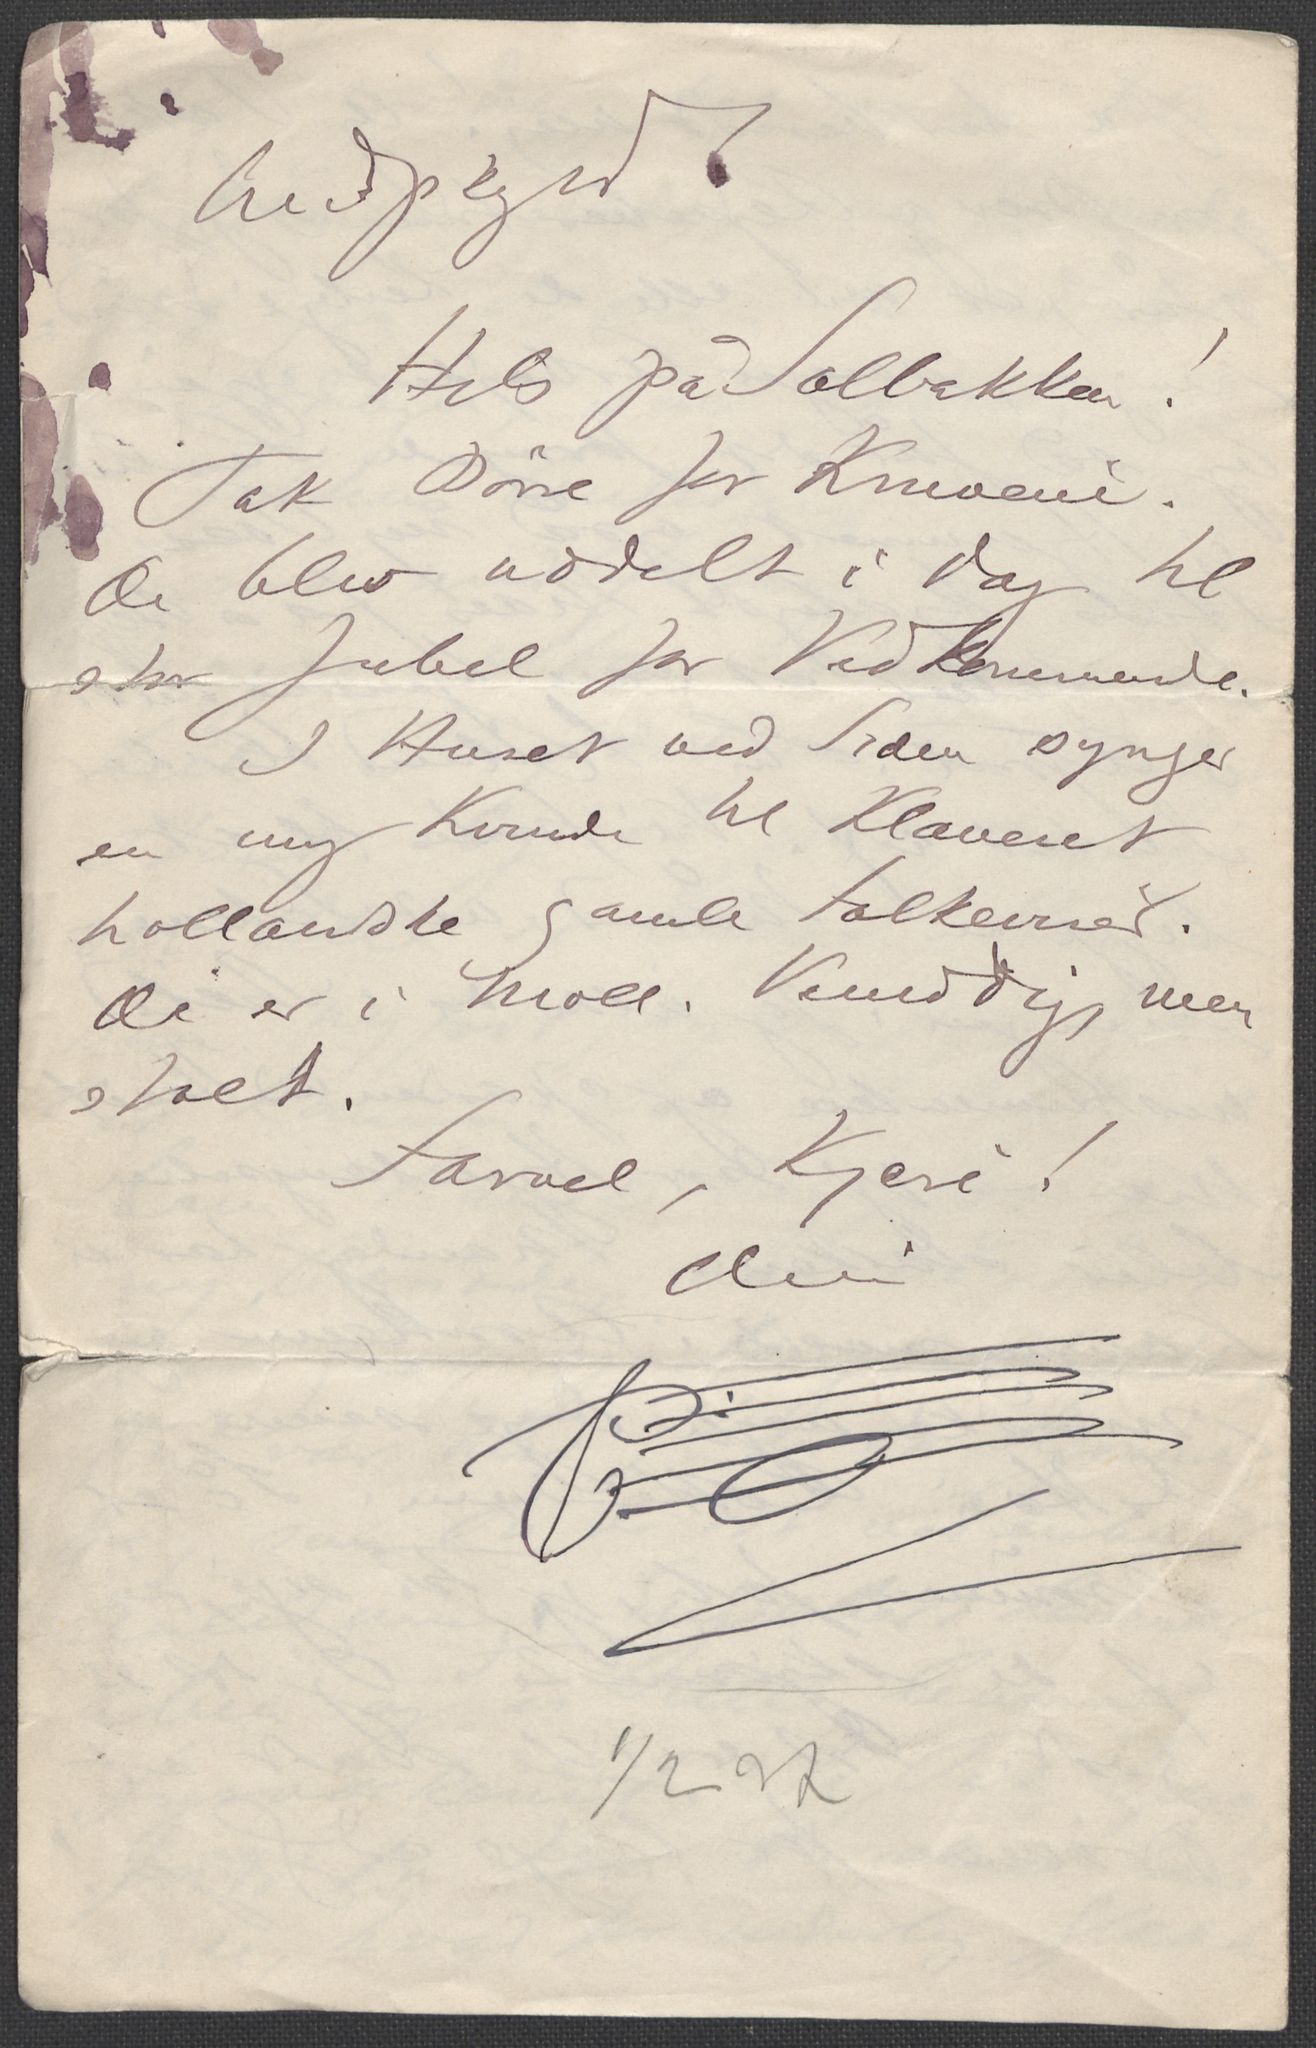 Hils på Solbakken!
Tak Börre for Knivene.
De blev uddelt i Dag til
stor Jubel for Vedkommende.
I Huset ved Siden synger
en ung Kvinde til Klaveret
hollandske gamle Folkeviser.
De er i Moll. Vemodig, men
stolt.
Farvel, Kjere!
Din
1/2 27